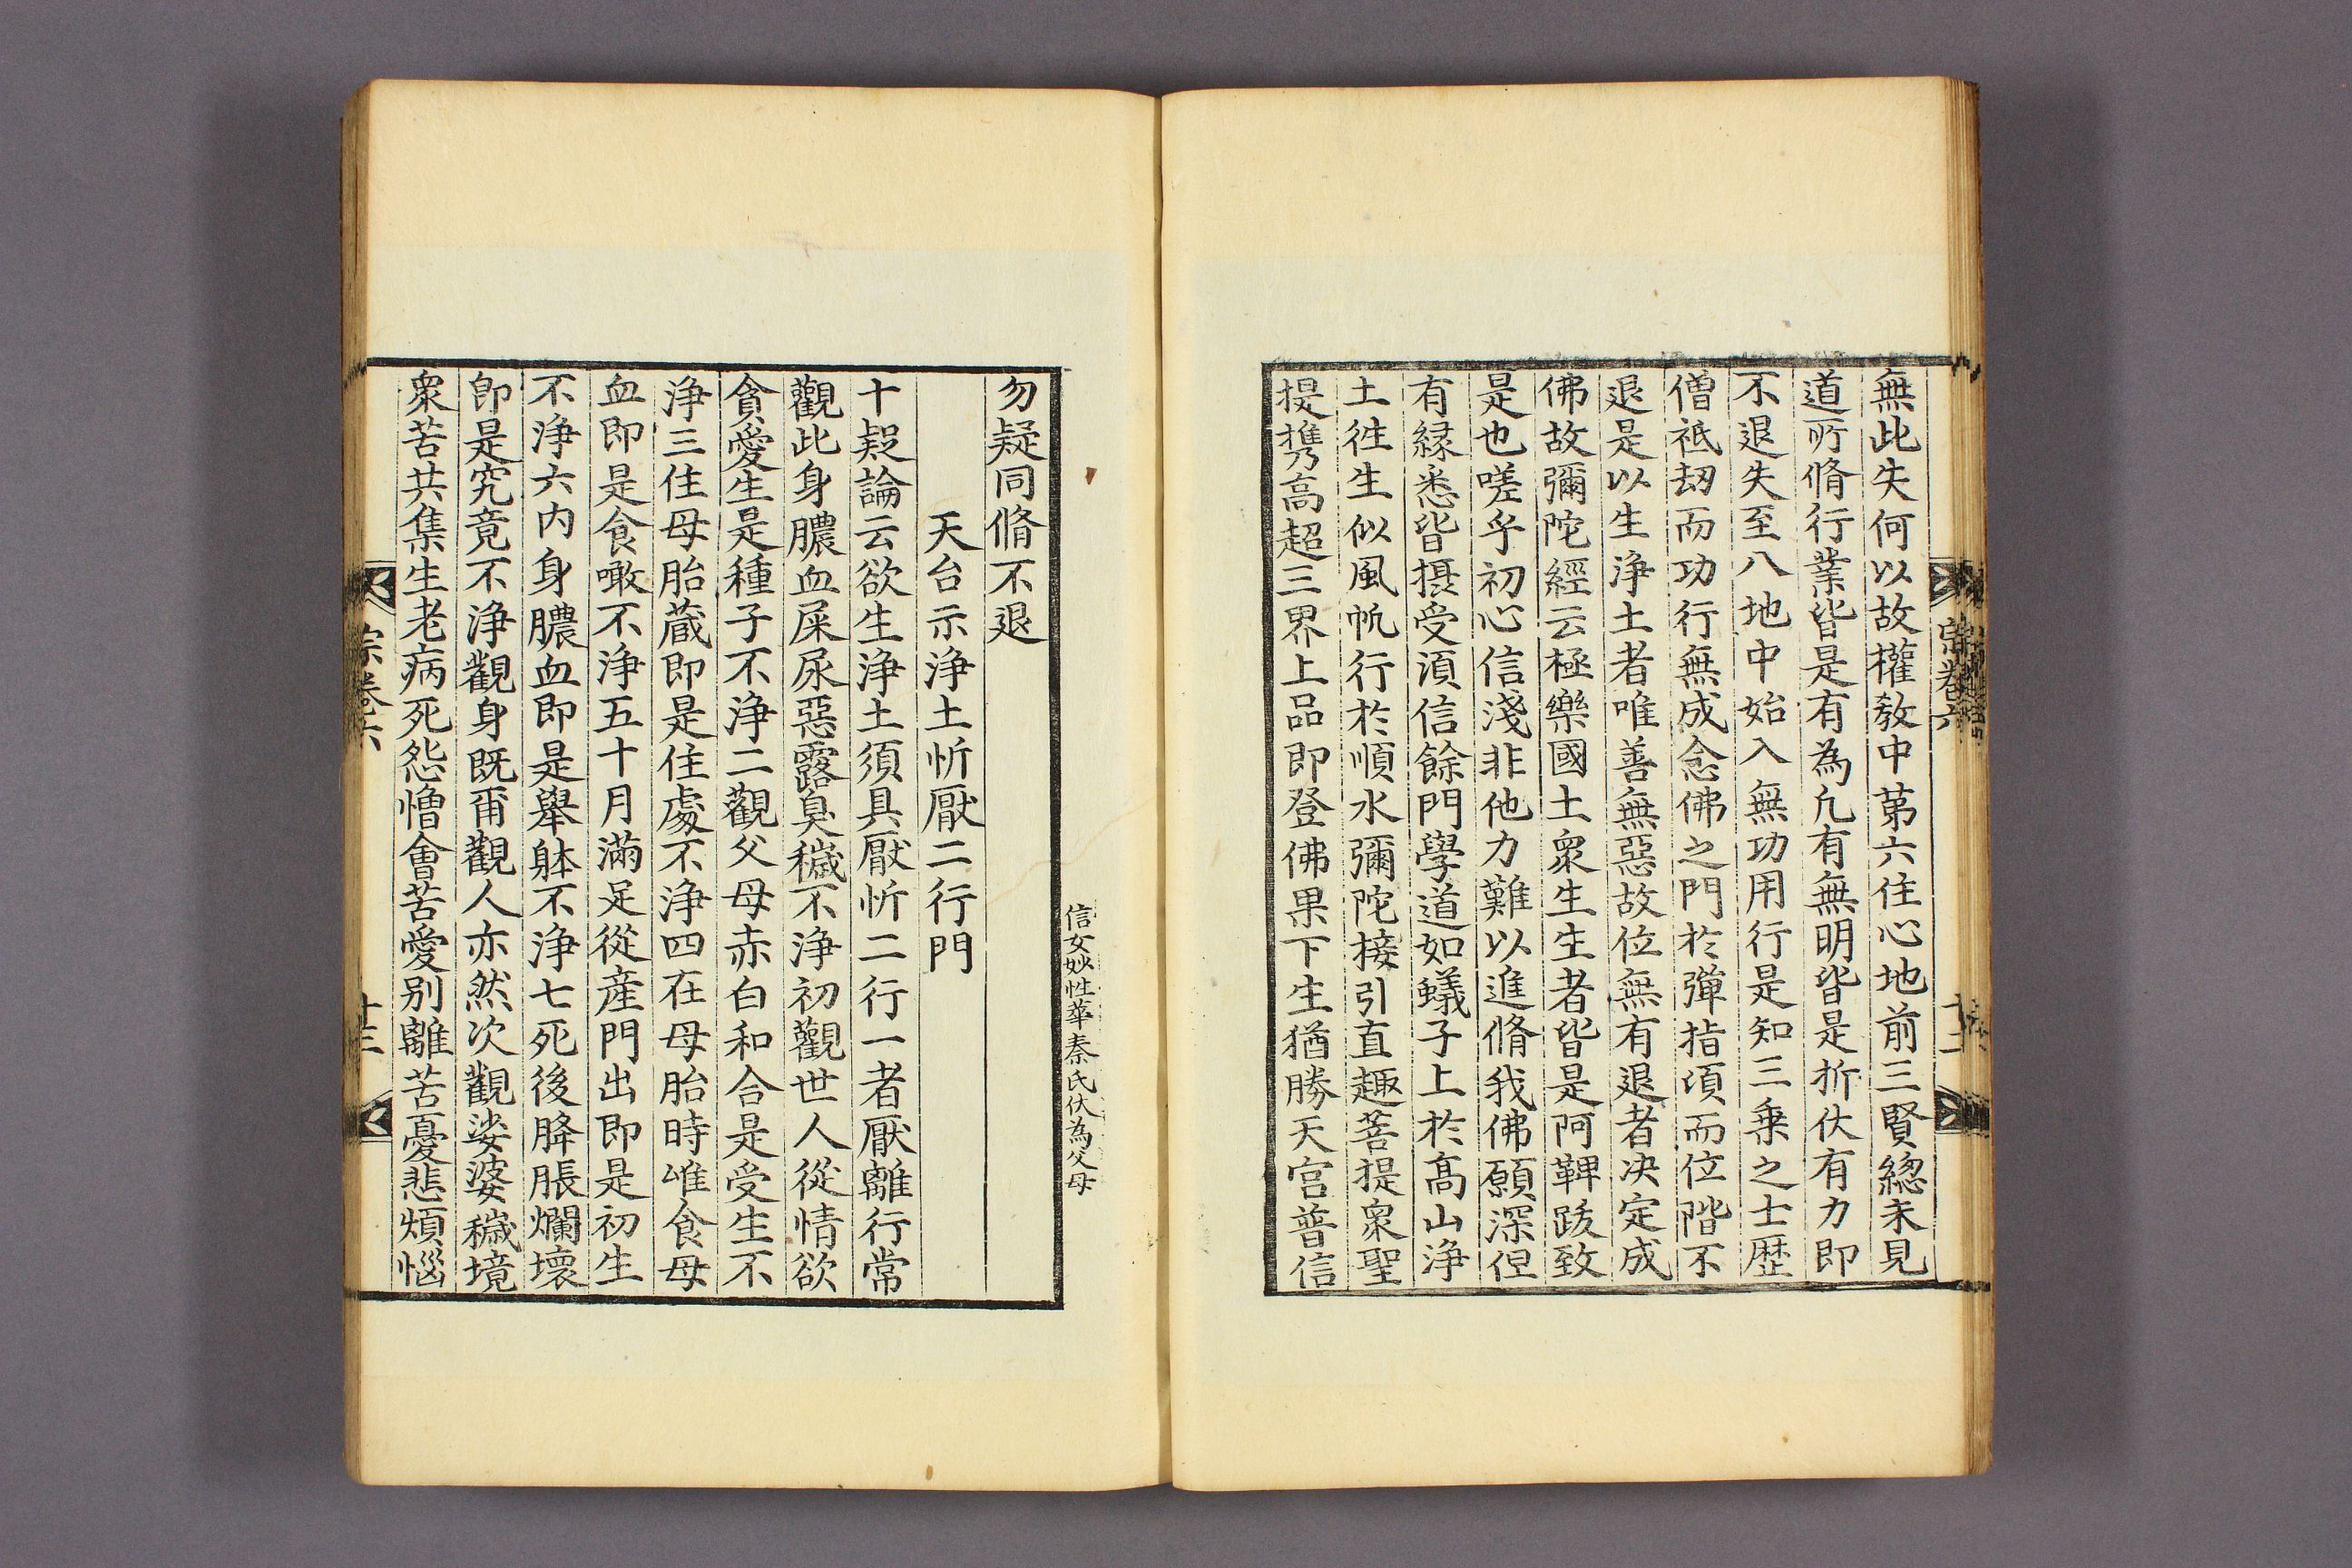 無此失何以故權敎中第六住心地前三賢緫未見
道所脩行業皆是有為凢有無明皆是折伏有力即
不退失至八地中始入無功用行是知三乗之士歷
僧祇刼而功行無成念佛之門於彈指頃而位階不
退是以生淨土者唯善無惡故位無有退者决定成
佛故彌陀經云極樂國土衆生生者皆是阿鞞跋致
是也嗟乎初心信淺非他力難以進脩我佛願深但
有緣悉皆攝受湏信餘門學道如蟻子上於髙山淨
土徃生似風帆行於順水彌陀接引直趣菩提衆聖
提携高超三界上品即登佛果下生猶勝天宫普信
宗卷六
十二
信女妙性華秦氏伏為父母
勿疑同脩不退
天台示淨土忻厭二行門
十疑論云欲生淨土須具厭忻二行一者厭離行常
觀此身膿血屎尿惡露臭穢不淨初觀世人從情欲
貪愛生是種子不淨二觀父母赤白和合是受生不
淨三住母胎蔵即是住處不淨四在母胎時唯食母
血即是食噉不淨五十月滿足從産門出即是初生
不淨六内身膿血即是舉躰不淨七死後胮脹爛壞
即是究竟不淨觀身既甭觀人亦然次觀娑婆穢境
衆苦共集生老病死怨憎㑹苦愛别離苦憂悲煩惱
宗卷六
十三